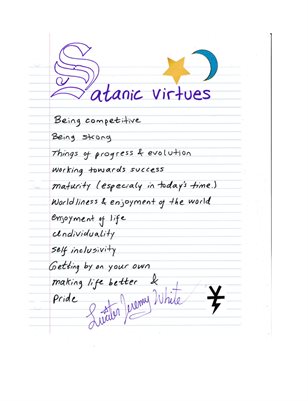 Satanic virtues
Being competitive
Being strong
Things of progress & evolution
working towards success
maturity (especialy in today's time)
Worldliness & enjoyment of the world
enjoyment of life
undividuality
self inclusivity
Getting by on your own
making life better &
Pride
Jeremy White